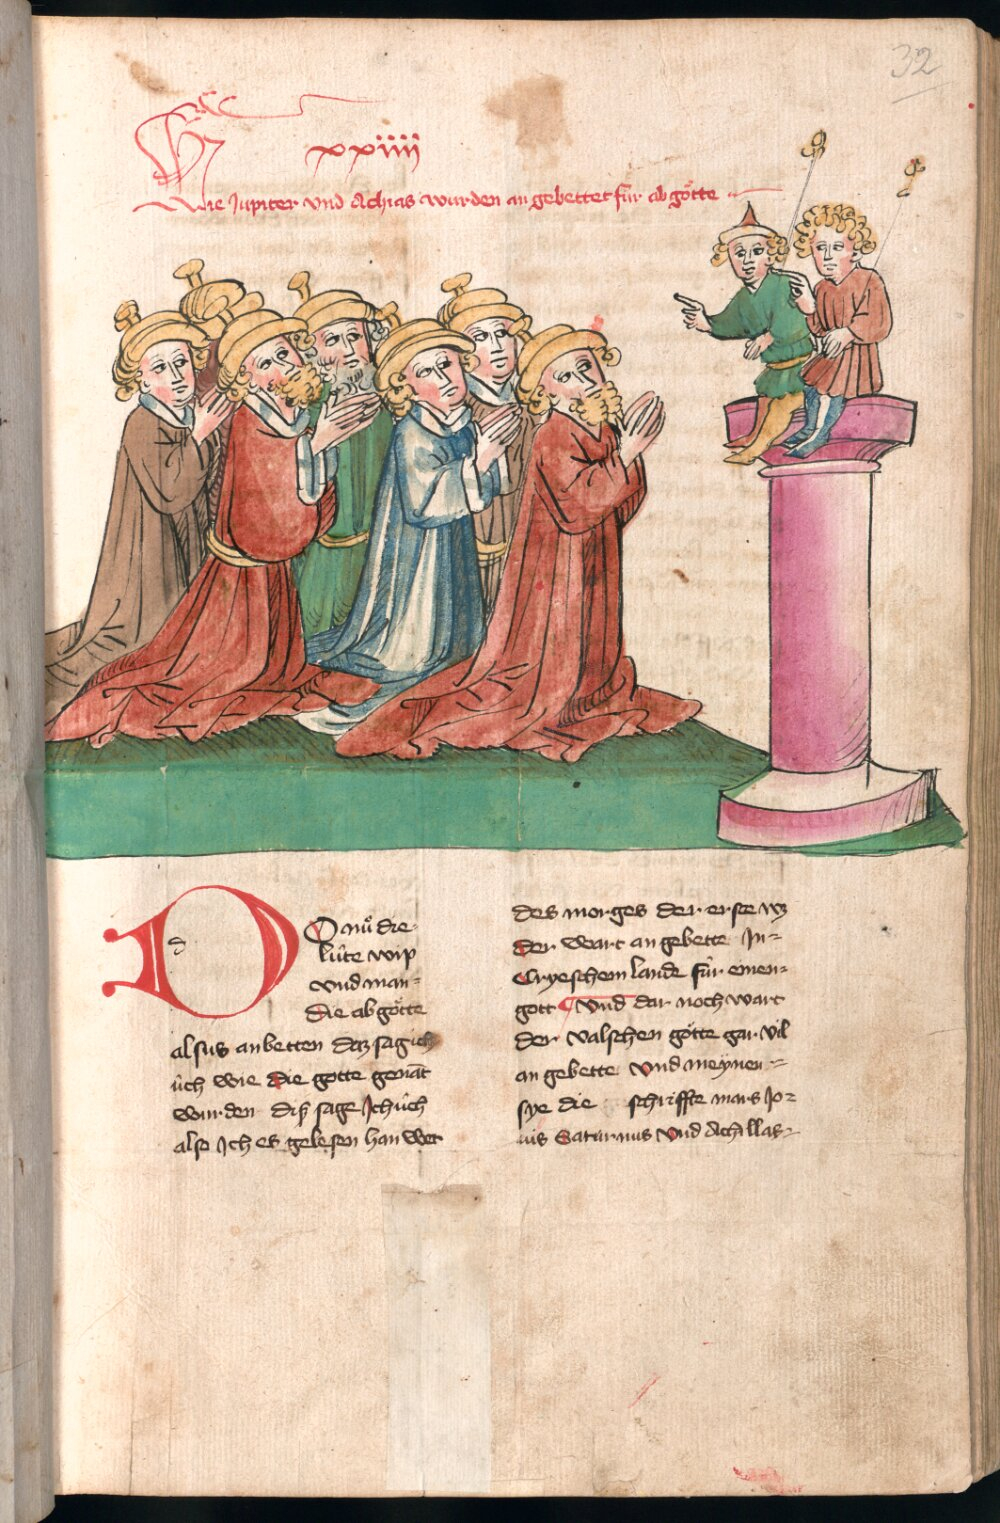 32
xxiiii
Wie Jupiter vnd Achias wurden an gebettet fúr ab götte
DO nuͦ die
lúte wip
vnd man
die ab götte
alsus anbetten daz sag ich
úch wie die gotte genāt
wurden diß sage Jch úch
also Jch es gelesen han wer
des morges der erste wz
der wart an gebette In
Cryeschem lande fúr einen
gott vnd dar noch wart
der valschen götte gar vil
an gebette vnd meynen
sye die schriffte mars Jo
uis Saturnus vnd Achillas